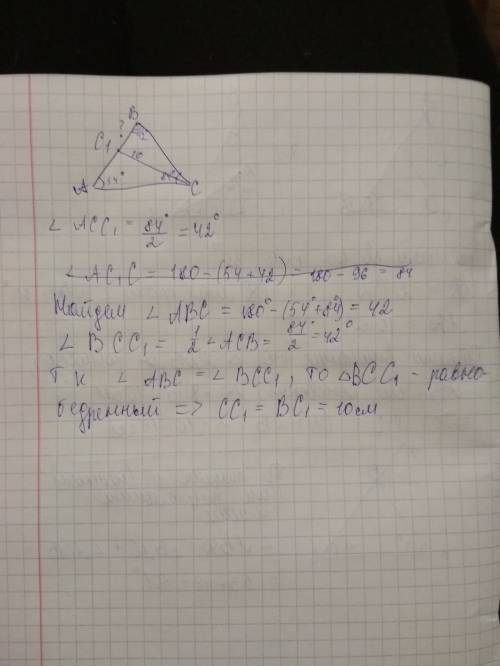 B
?
42
C₁
10
A
54°
84°
C
∠ ACC₁ = 84°/2 = 42°
∠ AC₁C = 180 - (54 + 42) = 180 - 96 = 84
Найдем ∠ ABC = 180° - (54° + 84°) = 42
∠ BCC₁ = 1/2 ∠ACB = 84°/2 = 42°
Т к ∠ ABC = ∠ BCC₁, то △BCC₁ - равно-
бедренный => CC₁ = BC₁ = 10 см